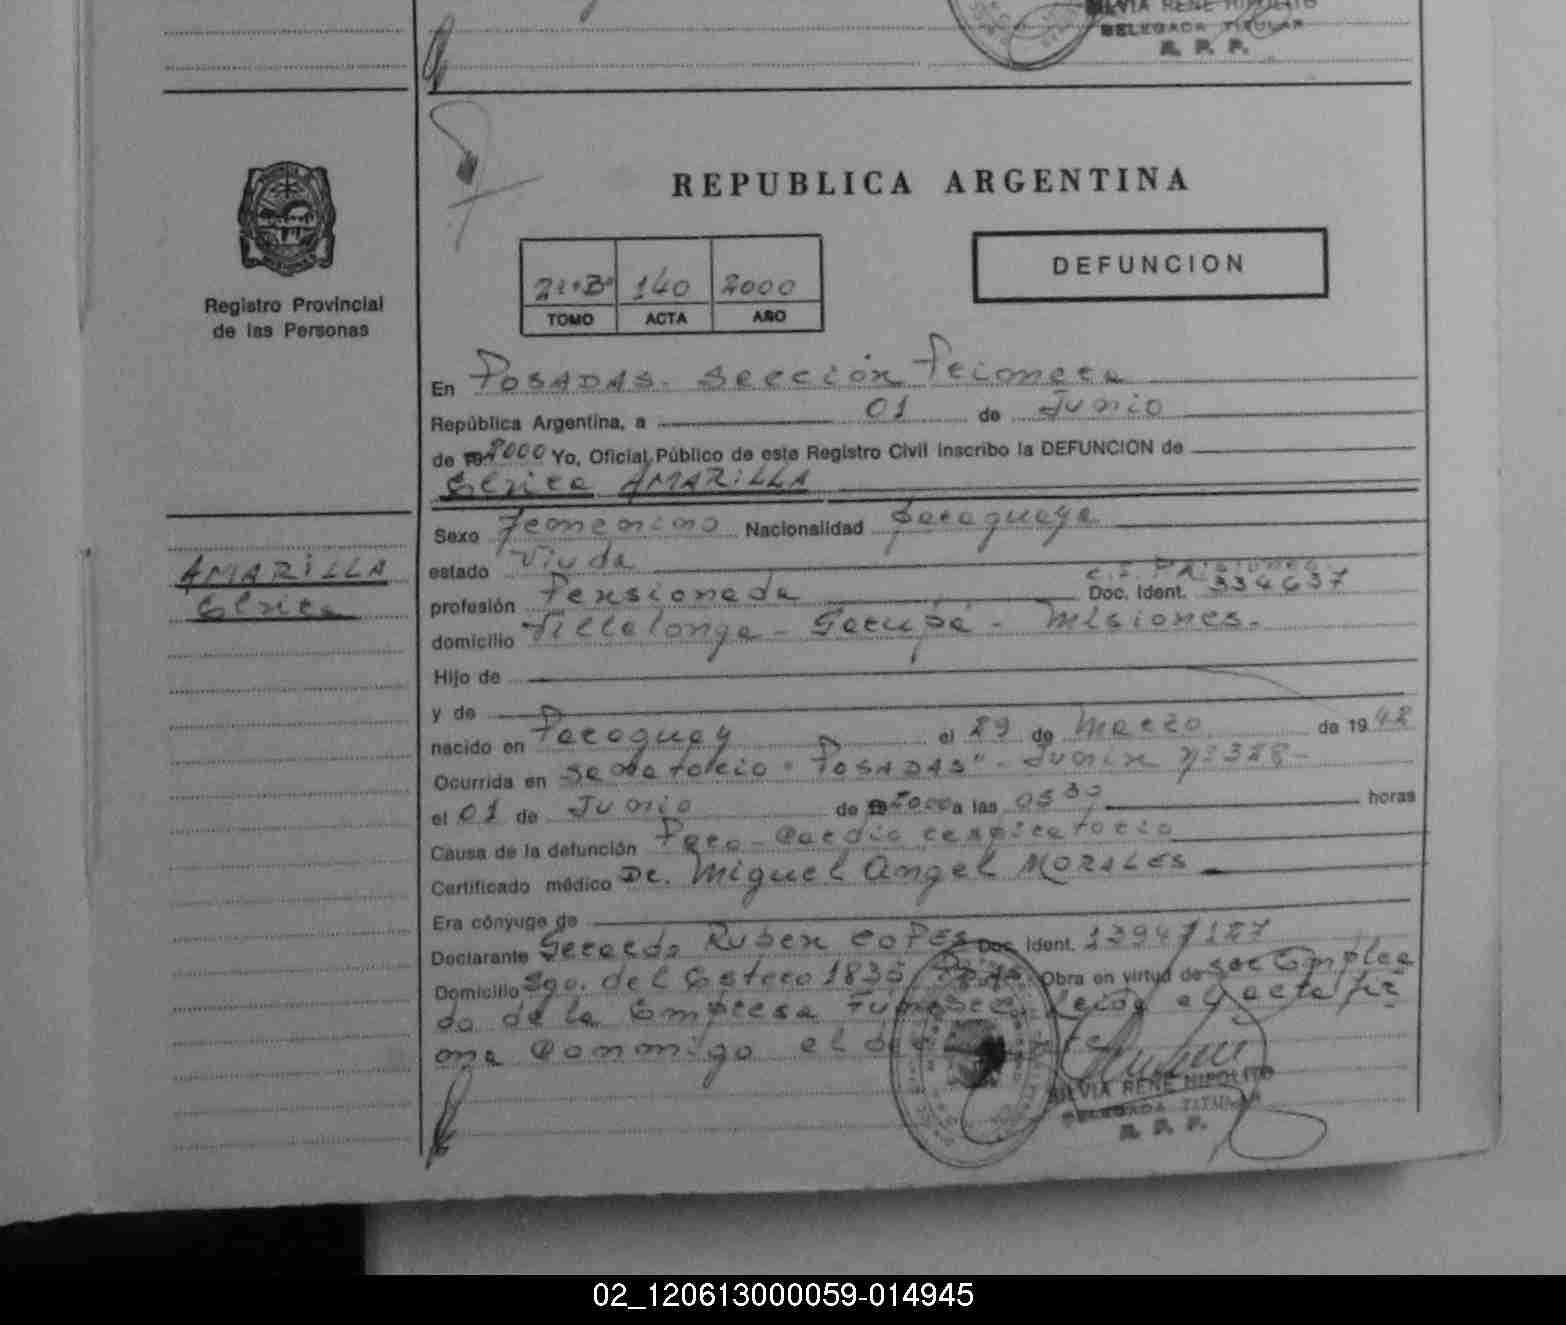 SILVIA RENE HIPOLITO
DELEGADA TITULAR
R. P. P.
REPUBLICA ARGENTINA
DEFUNCION
Registro Provincial
de las Personas
140 2000
TOMO ACTA AÑO
En POSADAS. Sección Primera
República Argentina, a 01 de Junio
de 2000 Yo, Oficial Público de este Registro Civil inscribo la DEFUNCION de
AMARILLA
Sexo Femenino Nacionalidad Paraguaya
AMARILLA
estado Viuda
profesión Pensionada Doc. Ident. 334637
domicilio Villalonga - Garupá - Misiones.
Hijo de
y de
nacido en Paraguay el 29 de Marzo de 19 42
Ocurrida en Sanatorio "POSADAS" - Junín Nº 328 -
el 01 de Junio de 2000 a las 05 30 horas
Causa de la defunción Paro - Cardio respiratorio
Certificado médico Dr. Miguel Angel MORALES
Era cónyuge de
Declarante Gerardo Ruben COPES Doc. Ident. 13947127
Domicilio Sgo. del Estero 1835 Obra en virtud de ser Emplea
do de la Empresa Leída el acta fir
ma Conmigo el
SILVIA RENE HIPOLITO
DELEGADA TITULAR
R. P. P.
02_120613000059-014945